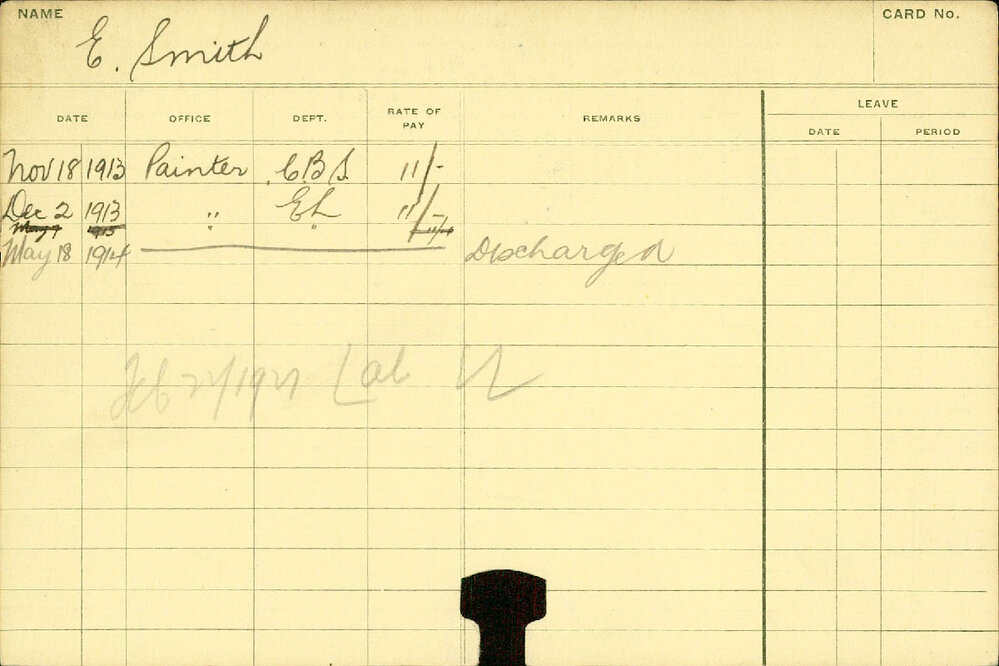 NAME
E. Smith
CARD No.
DATE OFFICE DEPT. RATE OF PAY REMARKS LEAVE
DATE PERIOD
Nov 18 1913 Painter C.B.S. 11/-
Dec 2 1913 " EL 11/-
May 1915 " " 11/-
May 18 1914 Discharged
Feb 1927 Lab